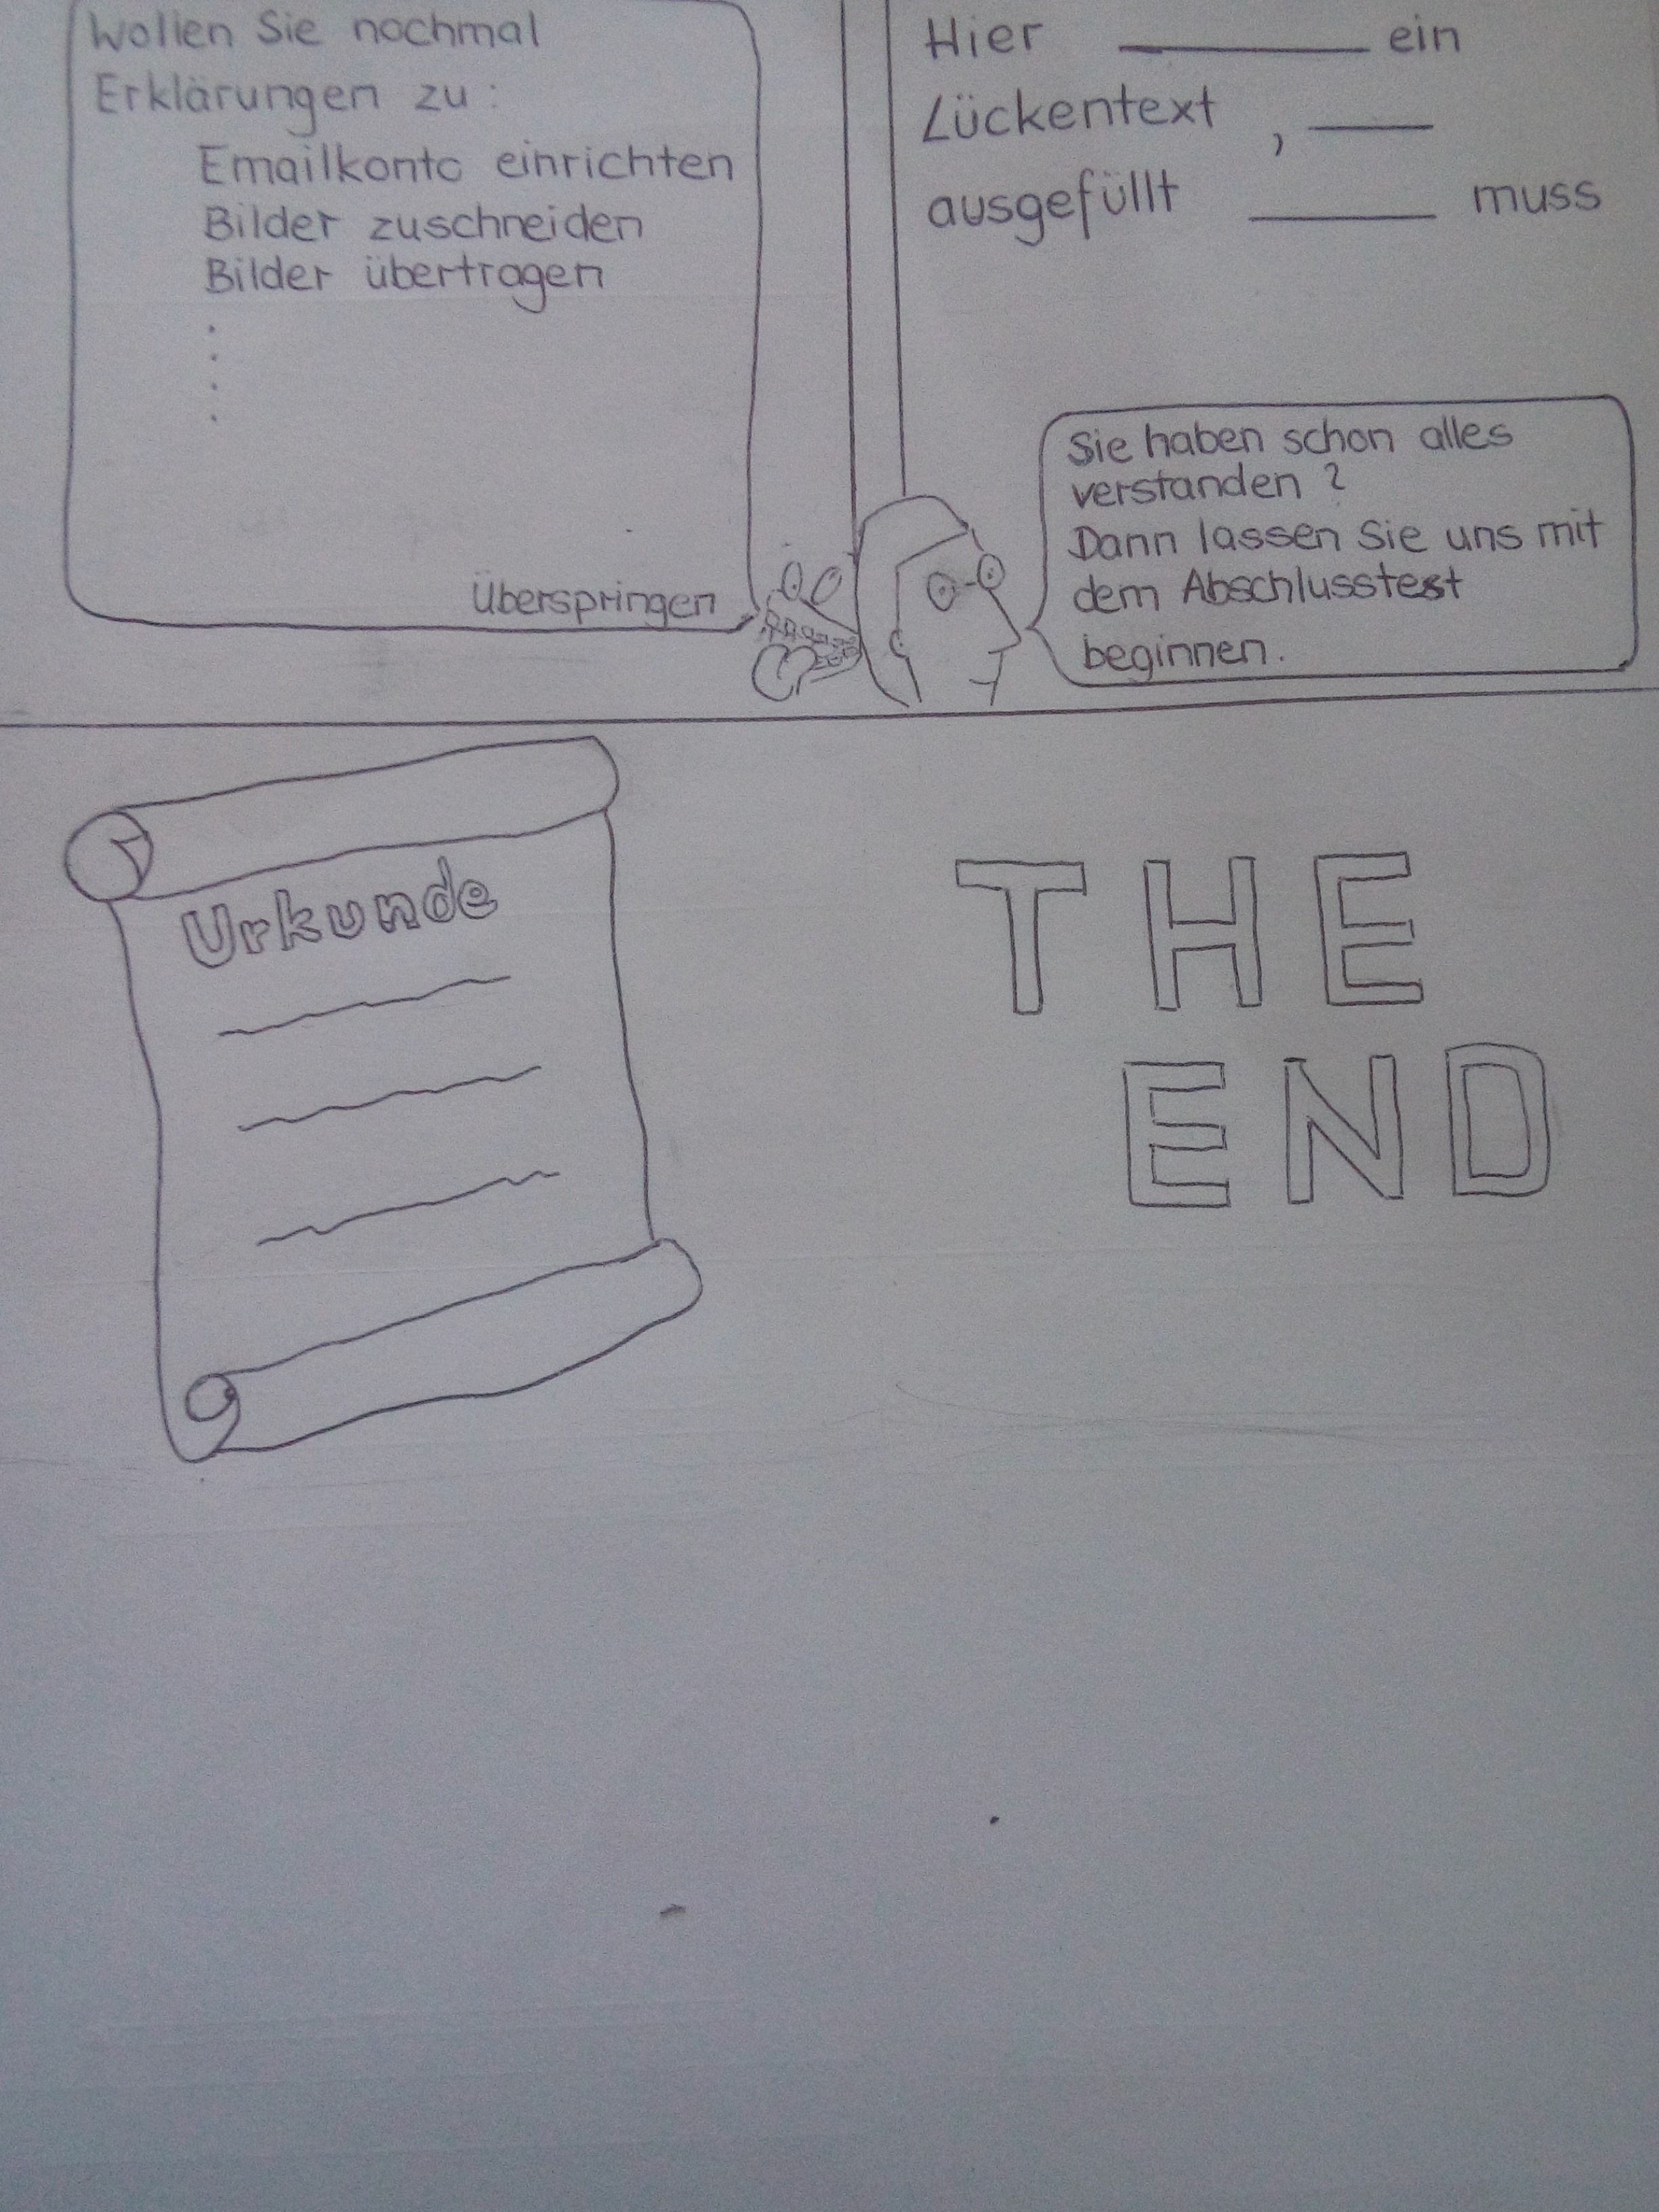 Wollen Sie nochmal
Erklärungen zu :
Emailkonto einrichten
Bilder zuschneiden
Bilder übertragen
.
.
.
.
Überspringen
Hier ________ ein
Lückentext , ____
ausgefüllt ______ muss
Sie haben schon alles
verstanden ?
Dann lassen Sie uns mit
dem Abschlusstest
beginnen.
Urkunde
THE
END